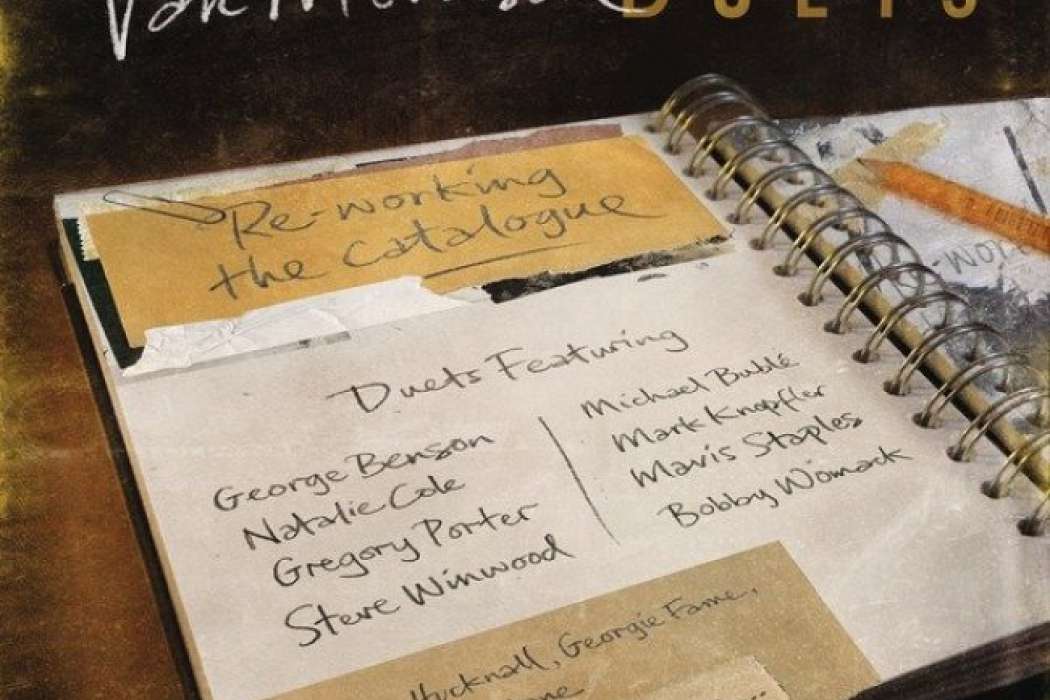 Van Morrison DUETS
Re-working
the Catalogue
Duets Featuring
George Benson
Natalie Cole
Gregory Porter
Steve Winwood
Michael Bublé
Mark Knopfler
Mavis Staples
Bobby Womack
Hucknall, Georgie Fame,